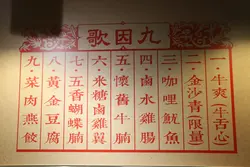 九因歌
一·牛爽(牛舌心)
二·金沙青(限量)
三·咖哩魷魚
四·鹵水雞腸
五·懷舊牛腩
六·米糖鹵雞翼
七·五香蝴蝶腩
八·黃金豆腐
九·菜肉燕餃